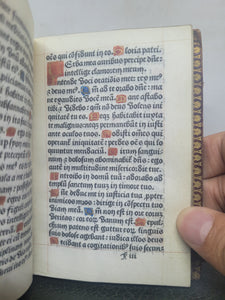 oēs qui cōfidunt in eo. Gloria patri.
Erba mea auribus percipe dñe:
intellige clamorem meum.
Intende voci orationis mee: rex me⁹
et deus me⁹. Qm̄ ad te orabo dñe: ma-
ne exaudies vocē meā. Mane astabo
tibi et videbo: qm̄ non deus volens
iniquitatem tu es. Neqз habitabit iuxta
te malignus: neqз permanebunt iniusti
ante oculos tuos. Odisti omnes qui ope-
rantur iniquitatem: perdes omnes qui lo-
quuntur mendaciū. Virum sangui-
num et dolosum abominabitur dñs: ego
autem in multitudine misericordie tue.
Introibo in domū tuā: adorabo ad
templū sanctum tuum in timore tuo.
Domine deduc me in iustitia tua: ppter
inimicos meos dirige in cōspectu tuo
viā meā. Qm̄ non est in ore eorū
veritas: cor eorū vanum est.
Sepulcrum patens est guttur eorū: linguis
suis dolose agebant: iudica illos deus
Decidant a cogitationibus suis: secundū
F iii